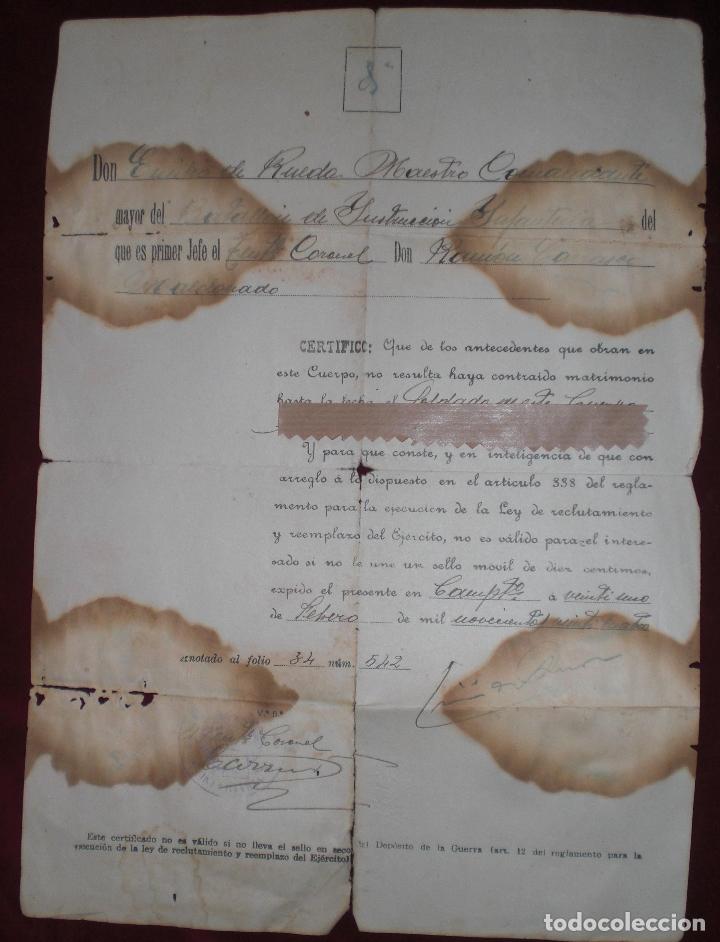 8ª
Don Emilio de Rueda Maestro Comandante
mayor del Batallón de Ystrucción Ynfantería del
que es primer Jefe el Tente Coronel Don Ramón Carrasco
Maldonado
CERTIFICO: Que de los antecedentes que obran en
este Cuerpo, no resulta haya contraido matrimonio
hasta la fecha el Soldado de este Cuerpo
Y para que conste, y en inteligencia de que con
arreglo á lo dispuesto en el articulo 338 del regla-
mento para la ejecucion de la Ley de reclutamiento
y reemplazo del Ejército, no es válido para el intere-
sado si no le une un sello movil de diez centimos,
expido el presente en Campto á veintiuno
de Febrero de mil novecientos veinticuatro
anotado al folio 34 núm. 542
V.º B.º
El Tente Coronel
Carrasco
Este certificado no es válido si no lleva el sello en seco del Depósito de la Guerra (art. 12 del reglamento para la
ejecución de la ley de reclutamiento y reemplazo del Ejército)
todocoleccion.net